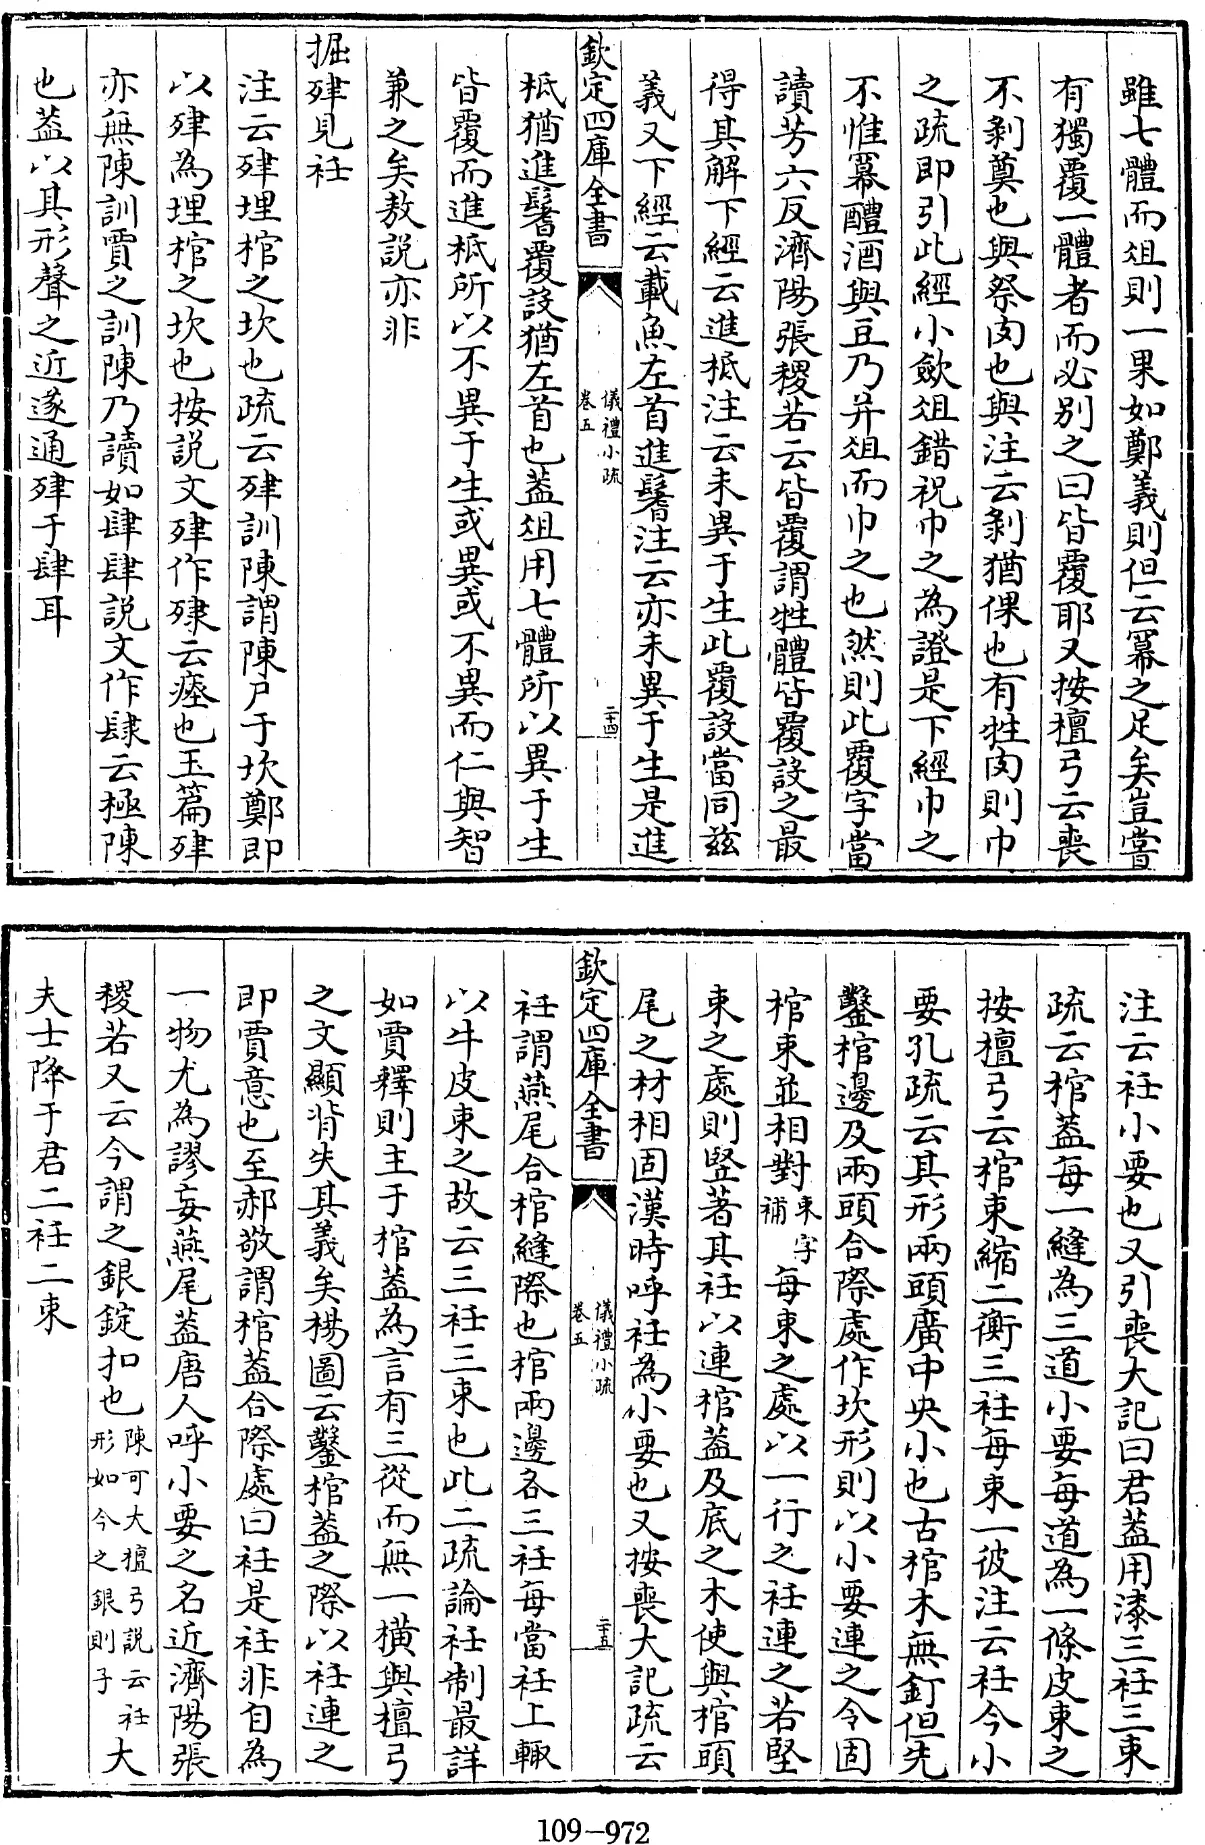 雖七體而俎則一果如鄭義則但云冪之足矣豈嘗
有獨覆一體者而必別之曰皆覆耶又按檀弓云喪
不剝奠也與祭肉也與注云剝猶倮也有牲肉則巾
之疏即引此經小斂俎錯祝巾之為證是下經巾之
不惟冪醴酒與豆乃并俎而巾之也然則此覆字當
讀芳六反濟陽張稷若云皆覆謂牲體皆覆設之最
得其解下經云進柢注云未異于生此覆設當同茲
義又下經云載魚左首進鬐注云亦未異于生是進
欽定四庫全書
儀禮小疏
卷五
二十四
柢猶進鬐覆設猶左首也蓋俎用七體所以異于生
皆覆而進柢所以不異于生或異或不異而仁與智
兼之矣敖説亦非
掘肂見衽
注云肂埋棺之坎也疏云肂訓陳謂陳尸于坎鄭即
以肂為埋棺之坎也按説文肂作𣩠云瘞也玉篇肂
亦無陳訓賈之訓陳乃讀如肆肆説文作肆云極陳
也蓋以其形聲之近遂通肂于肆耳
注云衽小要也又引喪大記曰君蓋用漆三衽三束
疏云棺蓋每一縫為三道小要每道為一條皮束之
按檀弓云棺束縮二衡三衽每束一彼注云衽今小
要孔疏云其形兩頭廣中央小也古棺木無釘但先
鑿棺邊及兩頭合際處作坎形則以小要連之令固
棺束並相對束字補每束之處以一行之衽連之若竪
束之處則竪著其衽以連棺蓋及底之木使與棺頭
尾之材相固漢時呼衽為小要也又按喪大記疏云
欽定四庫全書
儀禮小疏
卷五
二十五
衽謂燕尾合棺縫際也棺兩邊各三衽每當衽上輙
以牛皮束之故云三衽三束也此二疏論衽制最詳
如賈釋則主于棺蓋為言有三從而無一橫與檀弓
之文顯背失其義矣楊圖云鑿棺蓋之際以衽連之
即賈意也至郝敬謂棺蓋合際處曰衽是衽非自為
一物尤為謬妄燕尾蓋唐人呼小要之名近濟陽張
稷若又云今謂之銀錠扣也陳可大檀弓説云衽形如今之銀則子大
夫士降于君二衽二束
109-972